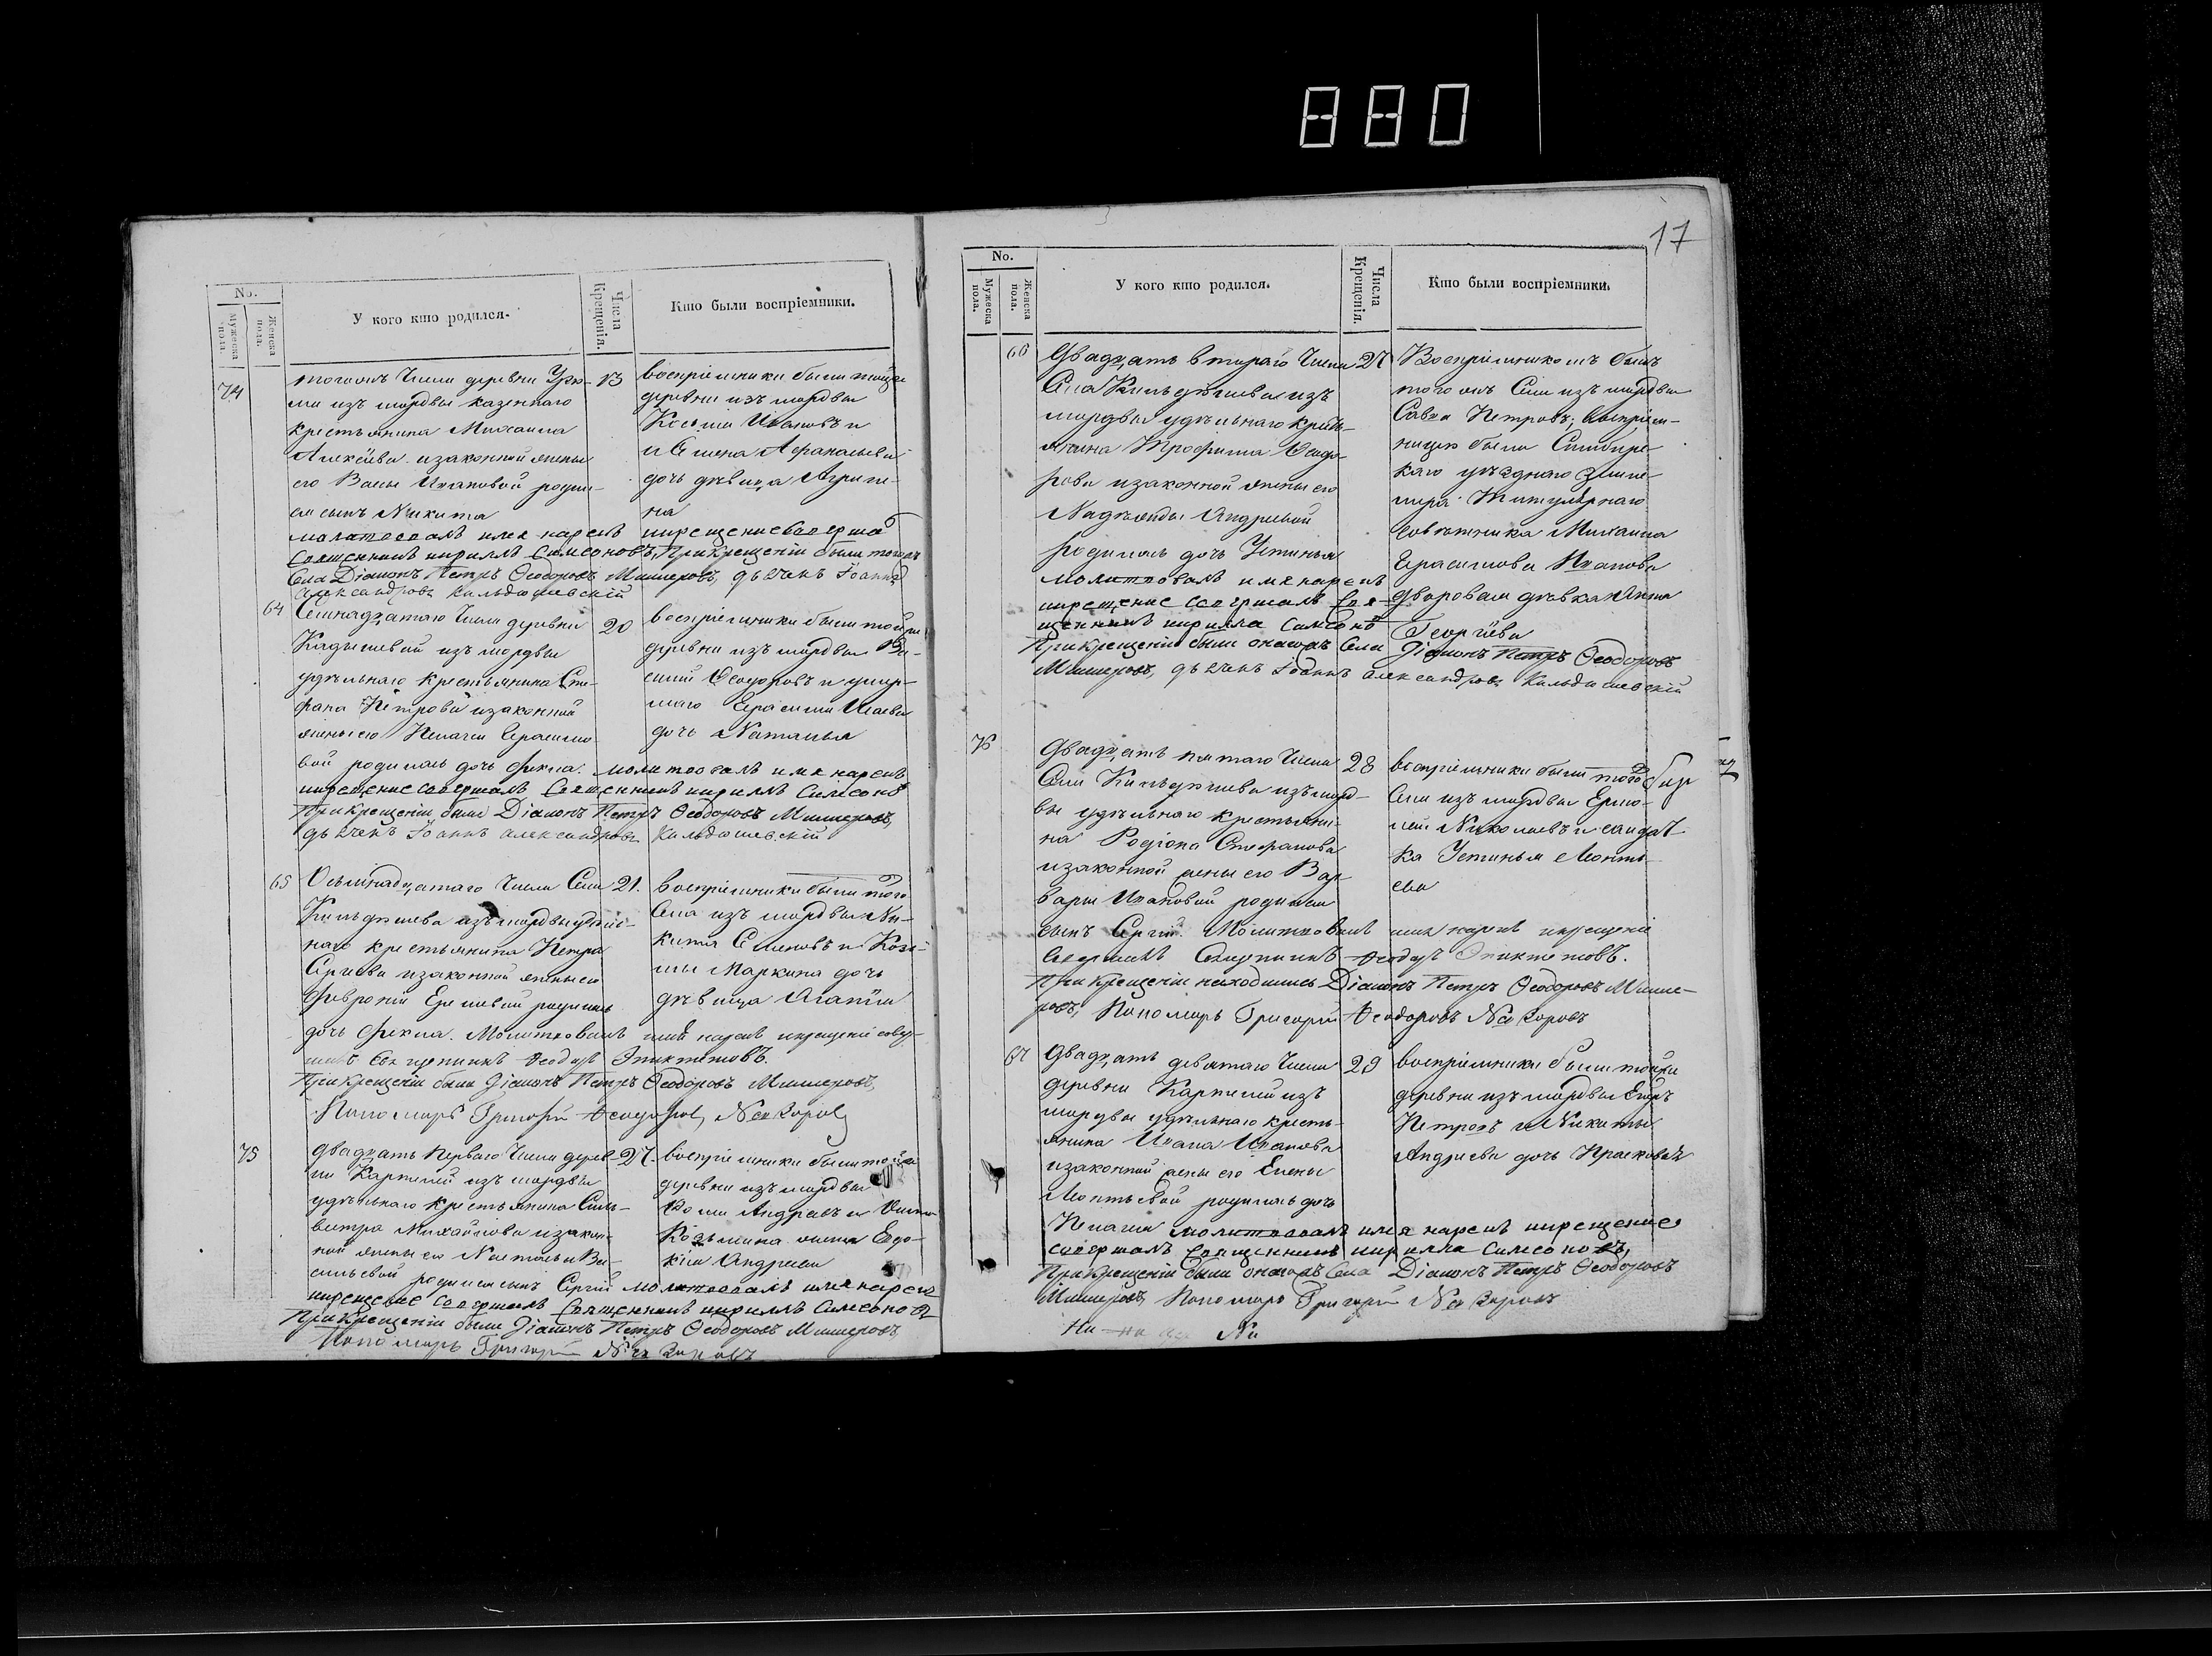 880
17
No.
Мужеска пола
Женска пола.
У кого кто родился.
Числа Крещенія.
Кто были воспріемники.
74
тогожъ Числа деревни
ми изъ мордвы казеннаго
крестьянина Михаила
Алексѣева изаконной жены
его Вассы Ивановой родил-
ся сынъ Никита
13
воспріемники были тойже
деревни изъ мордвы
Козьма Ивановъ и
Семена Афанасьева
дочь дѣвица Агрипе-
на
молитвовалъ имя нарекъ икрещение совершал
Священникъ кириллъ Симеоновъ, При Крещеніи были тогожъ
Села Діаконъ Петръ Ѳеодоровъ Мишеровъ, дьячекъ Іоаннъ
Александровъ Кильдюшевскій
64
Семнадцатаго Числа деревни
Кадышевой изъ мордвы
удѣльнаго крестьянина Сте-
фана Петрова изаконной
жены его Пелагеи Герасимо-
вой родилась дочь Фекла.
20
воспріемники были тойже
деревни изъ мордвы Ва-
силий Ѳеодоровъ и умер-
шаго Герасима Исаева
дочь Наталья
молитвовалъ имя нарекъ
икрещение совершалъ Священникъ кириллъ Симеоновъ
При Крещеніи были Діаконъ Петръ Ѳеодоровъ Мишеровъ,
дьячекъ Іоаннъ александровъ Кильдюшевскій
65
Осьмнадцатаго Числа Села
Кильдюшева изъ мордвы удѣль-
наго крестьянина Петра
Сергѣева изаконной жены его
Февроніи Ереміевой родилась
дочь Фекла.
21.
воспріемники были того
Села изъ мордвы Ни-
кита Семеновъ и Козь-
мы Маркина дочь
дѣвица Агапія
Молитвовалъ имя нарекъ икрещеніе совер-
шилъ Священникъ Ѳеодоръ Эпиктетовъ.
При Крещеніи были Діаконъ Петръ Ѳеодоровъ Мишеровъ,
Пономарь Григорій Ѳеодоровъ Невзоровъ
75
Двадцать перваго Числа дерев-
ни Карпелей изъ мордвы
удѣльнаго крестьянина Силь-
вестра Михайлова изакон-
ной жены его Настасьи Ва-
сильевой родился сынъ Сергій
27.
воспріемники были тойже
деревни изъ мордвы
Андреевъ и
Козьмина жена Евдо-
кія Андреева
молитвовалъ имя нарекъ
икрещение совершалъ Священникъ кириллъ Симеоновъ
При Крещеніи были Діаконъ Петръ Ѳеодоровъ Мишеровъ
Пономарь Григорій Невзоровъ
No.
Мужеска пола.
Женска пола.
У кого кто родился.
Числа Крещенія.
Кто были воспріемники.
66
Двадцать втораго Числа
Села Кильдюшева изъ
мордвы удѣльнаго кресть-
янина Трофима Ѳеодо-
рова изаконной жены его
Надѣжды Андреевой
родилась дочь Устинья
27
Воспріемникомъ былъ
тогожъ Села изъ мордвы
Савва Петровъ, воспріем-
ницею была Симбирс-
каго уѣзднаго Земле-
мера Титулярнаго
Совѣтника Михаила
Герасимова Иванова
дворовая дѣвка Анна
Георгіева
молитвовалъ имя нарекъ
икрещение совершалъ Свя-
щенникъ кирилла Симеоновъ
При Крещеніи были онагожъ Села Діаконъ Петръ Ѳеодоровъ
Мишеровъ, дьячекъ Іоаннъ александровъ Кильдюшевскій
76
Двадцать пятаго Числа
Села Кильдюшева изъ морд-
вы удѣльнаго крестьяни-
на Родіона Стефанова
изаконной жены его Вар-
вары Ивановой родился
сынъ Сергій.
28
воспріемники были того
Села изъ мордвы Ермо-
лай Николаевъ и солдат-
ка Устинья Леонть-
ева
Молитвовалъ имя нарекъ икрещеніе
совершилъ Священникъ Ѳеодоръ Эпиктетовъ.
При Крещеніи находились Діаконъ Петръ Ѳеодоровъ Мише-
ровъ, Пономарь Григорій Ѳеодоровъ Невзоровъ
67
Двадцать девятаго Числа
деревни Карпелей изъ
мордвы удѣльнаго кресть-
янина Ивана Иванова
изаконной жены его Елены
Леонтьевой родилась дочь
Пелагея
29
воспріемники были тойже
деревни изъ мордвы Егоръ
Петровъ и Никиты
Андреева дочь Прасковья
молитвовалъ имя нарекъ икрещение
совершалъ Священникъ кирилла Симеоновъ,
При Крещеніи были онагожъ Села Діаконъ Петръ Ѳеодоровъ
Мишеровъ, Пономарь Григорій Невзоровъ